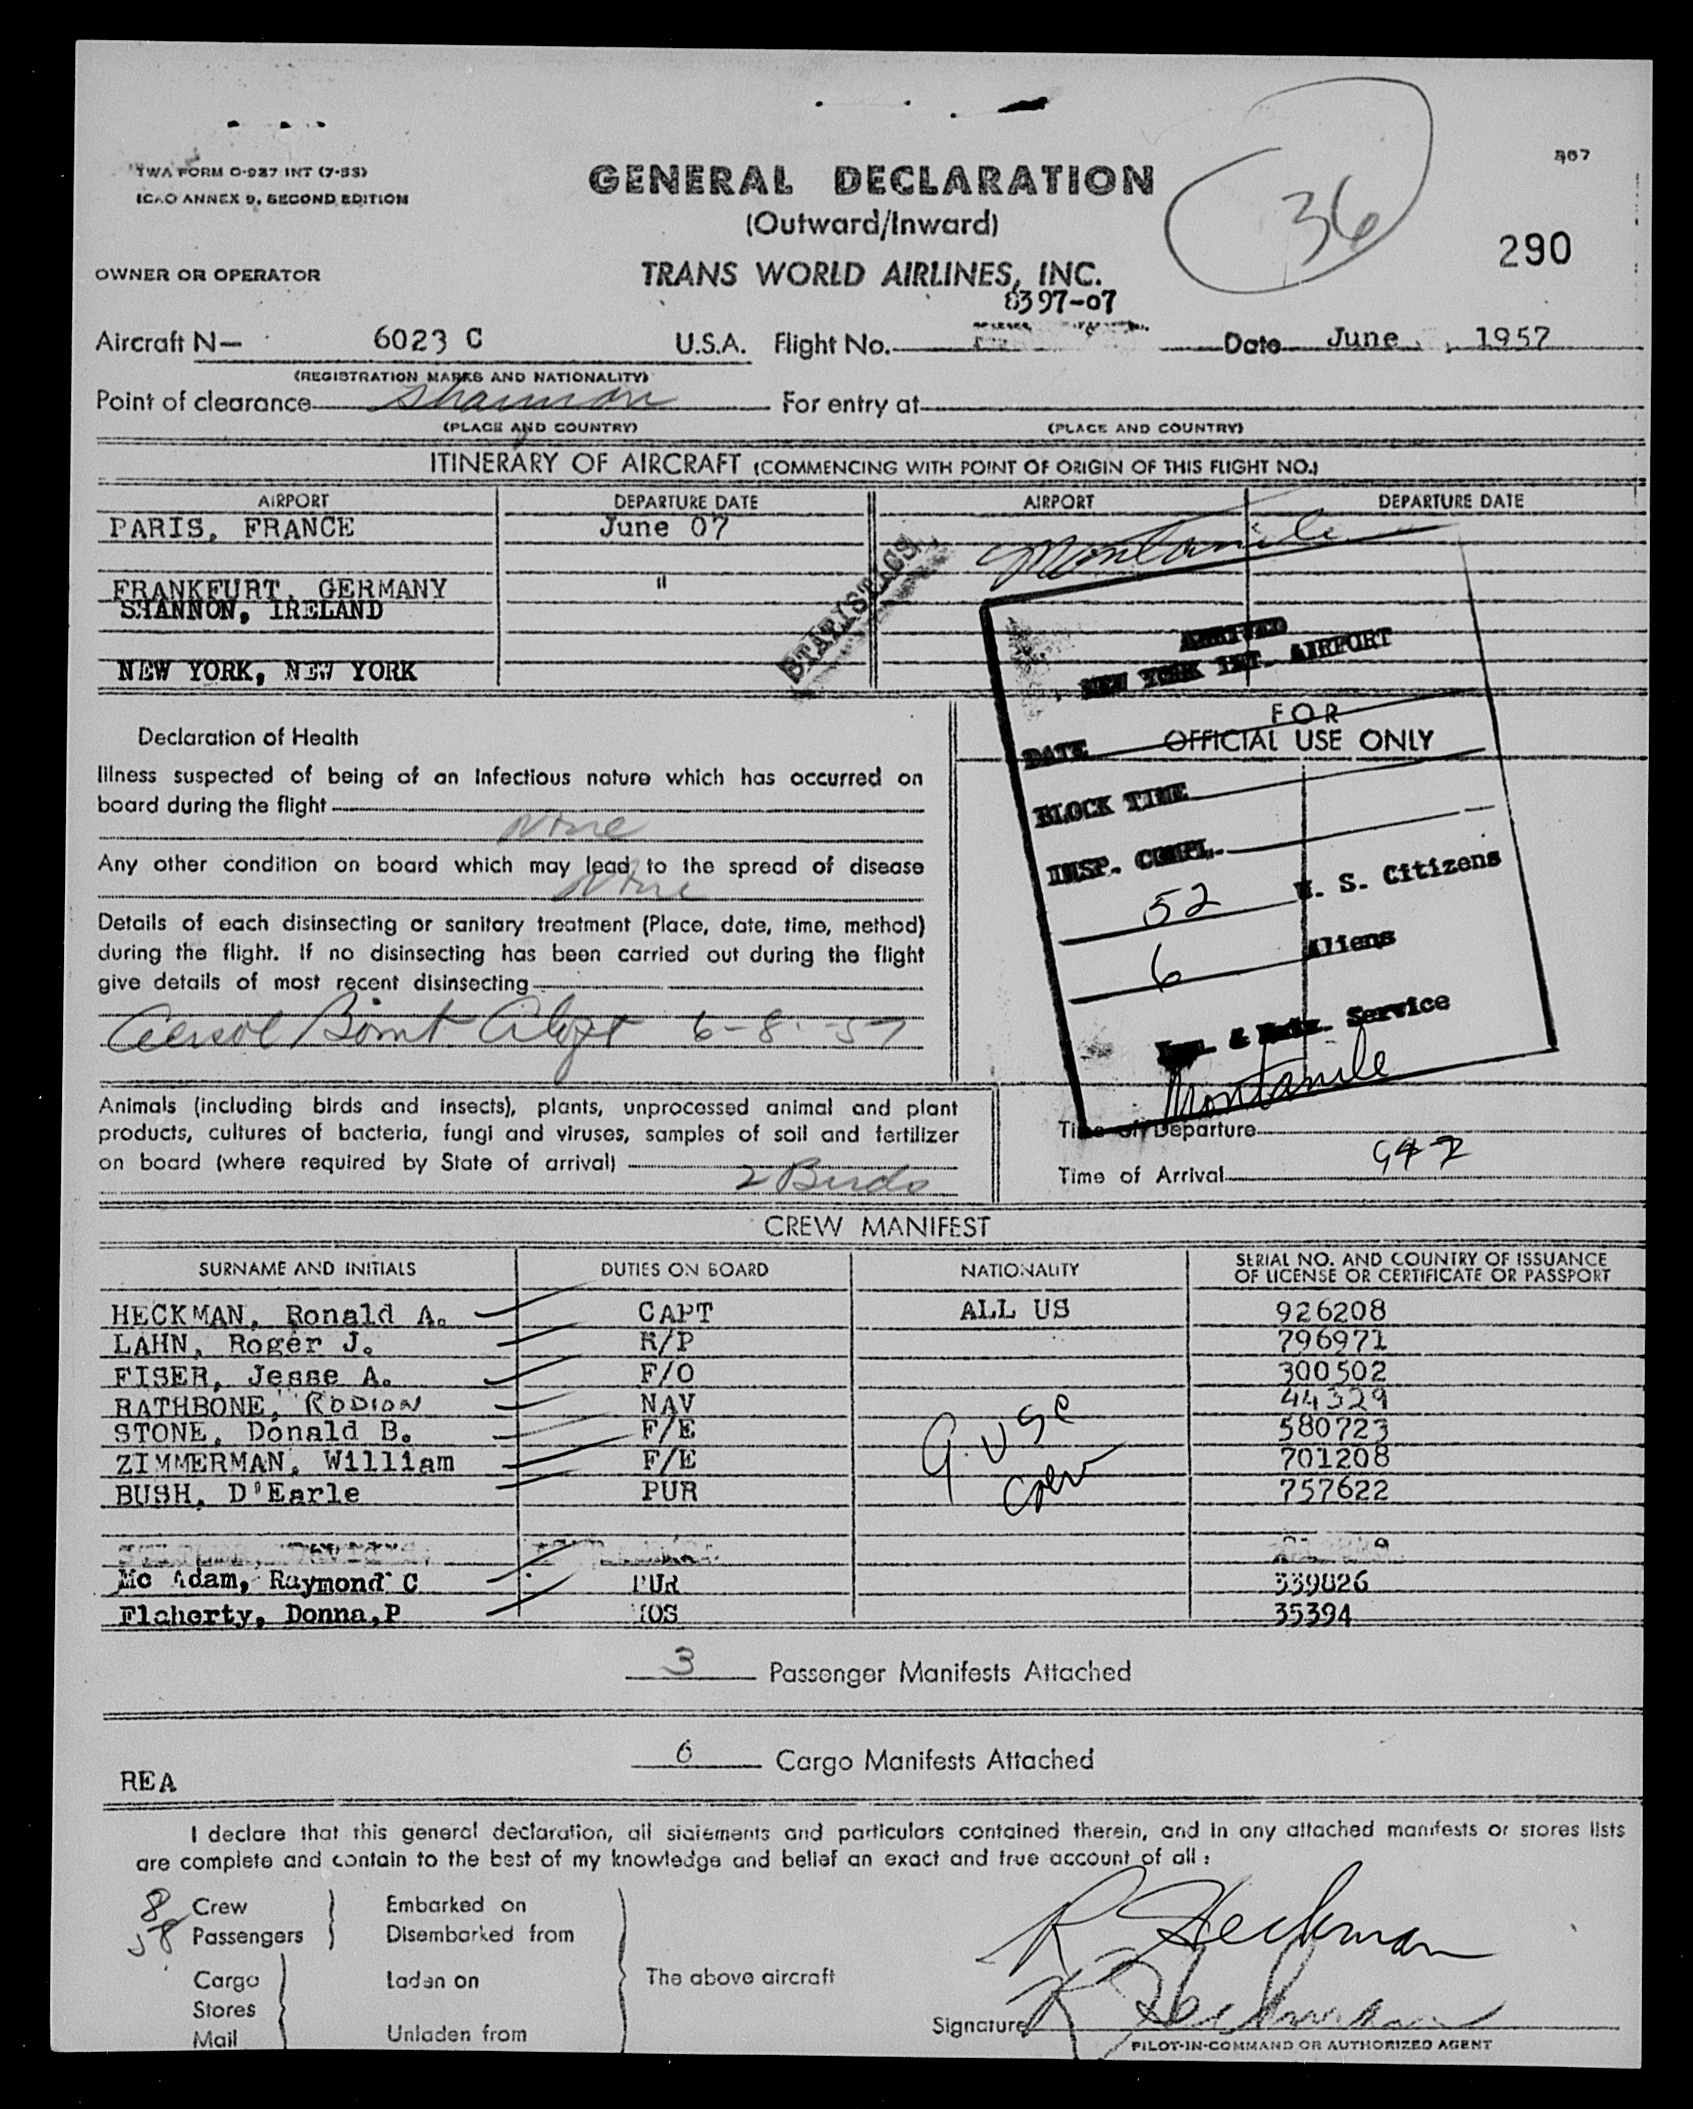 TWA FORM O-927 INT (7-55)
ICAO ANNEX 9, SECOND EDITION
GENERAL DECLARATION
(Outward/Inward)
36
290
OWNER OR OPERATOR
TRANS WORLD AIRLINES, INC.
8397-07
Aircraft N— 6023 C U.S.A. Flight No. Date June , 1957
(REGISTRATION MARKS AND NATIONALITY)
Point of clearance Shannon For entry at
(PLACE AND COUNTRY) (PLACE AND COUNTRY)
ITINERARY OF AIRCRAFT (COMMENCING WITH POINT OF ORIGIN OF THIS FLIGHT NO.)
AIRPORT DEPARTURE DATE AIRPORT DEPARTURE DATE
PARIS, FRANCE June 07
Montanile
FRANKFURT, GERMANY "
SHANNON, IRELAND
NEW YORK, NEW YORK
STATISTICS
ARRIVED
NEW YORK INT. AIRPORT
FOR
OFFICIAL USE ONLY
DATE
BLOCK TIME
INSP. COMPL.
52 U. S. Citizens
6 Aliens
Imm. & Natz. Service
Montanile
Declaration of Health
Illness suspected of being of an infectious nature which has occurred on
board during the flight
None
Any other condition on board which may lead to the spread of disease
None
Details of each disinsecting or sanitary treatment (Place, date, time, method)
during the flight. If no disinsecting has been carried out during the flight
give details of most recent disinsecting
6-8-57
Animals (including birds and insects), plants, unprocessed animal and plant
products, cultures of bacteria, fungi and viruses, samples of soil and fertilizer
on board (where required by State of arrival)
2 Birds
Time of Departure
Time of Arrival 942
CREW MANIFEST
SURNAME AND INITIALS DUTIES ON BOARD NATIONALITY SERIAL NO. AND COUNTRY OF ISSUANCE OF LICENSE OR CERTIFICATE OR PASSPORT
HECKMAN, Ronald A. CAPT ALL US 926208
LAHN, Roger J. R/P 796971
FISER, Jesse A. F/O 300502
RATHBONE, RODION NAV 44329
STONE, Donald B. F/E 580723
ZIMMERMAN, William F/E 701208
BUSH, D'Earle PUR 757622
9 USC
Crew
Mc Adam, Raymond C PUR 339826
Flaherty, Donna,P HOS 35394
3 Passenger Manifests Attached
6 Cargo Manifests Attached
REA
I declare that this general declaration, all statements and particulars contained therein, and in any attached manifests or stores lists
are complete and contain to the best of my knowledge and belief an exact and true account of all :
8 Crew Embarked on
58 Passengers Disembarked from
Cargo Laden on The above aircraft
Stores
Mail Unladen from
R Heckman
Signature R Heckman
PILOT-IN-COMMAND OR AUTHORIZED AGENT